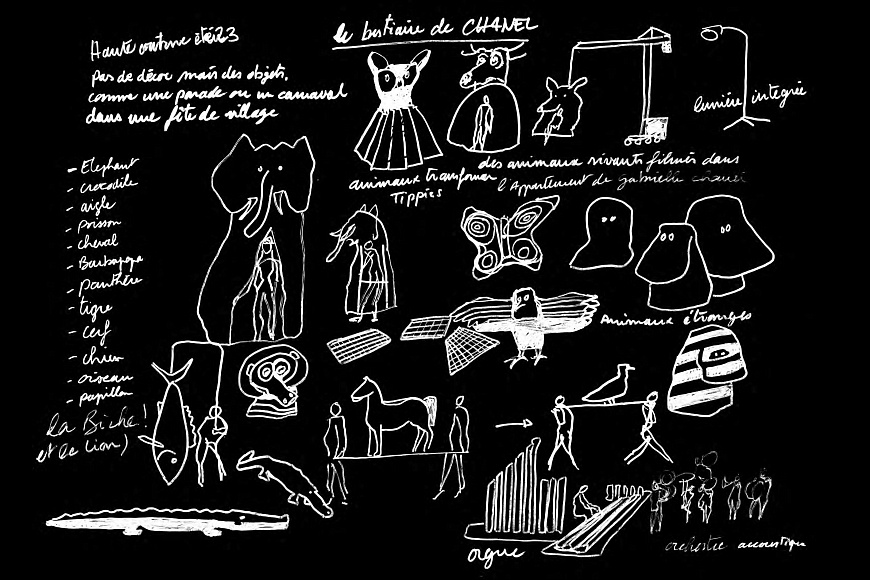 Haute couture été 23
le bestiaire de CHANEL
Pas de décor mais des objets,
comme une parade ou un carnaval
dans une fête de village
lumière intégrée
des animaux vivants filmés dans
l'Appartement de Gabrielle Chanel
animaux transformer
Tippies
- Elephant
- crocodile
- aigle
- poisson
- cheval
- Barbapapa
- panthère
- tigre
- cerf
- chien
- oiseau
- papillon
la Biche!
et le lion)
Animaux étranges
orgue
orchestre accoustique